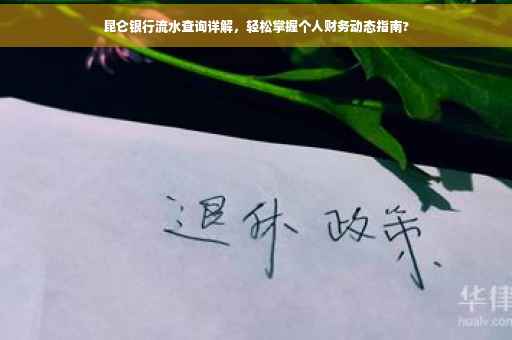 昆仑银行流水查询详解，轻松掌握个人财务动态指南?
退休政策
华律
hualv.com